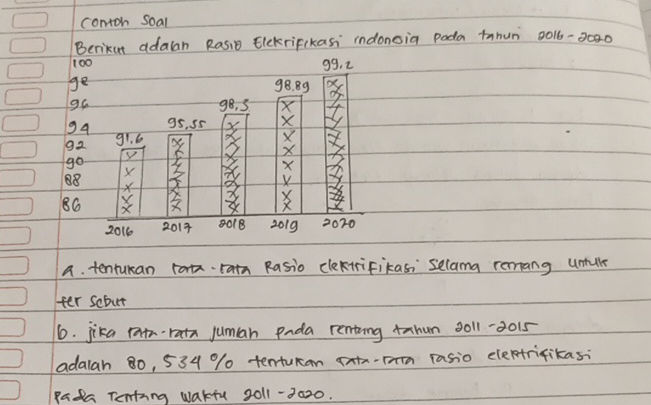 Contoh Soal
Berikut adalah Rasio Elekrifikasi indonesia pada tahun 2016-2020
100
98
96
94
92
90
88
86
91,6
95,35
98,3
98.89
99,2
2016 2017 2018 2019 2020
a. tentukan rata-rata Rasio elektrifikasi selama rentang untuk
ter sebut
b. jika rata-rata jumlah pada rentang tahun 2011-2015
adalah 80,534 % tentukan rata-rata rasio elektrifikasi
pada rentang waktu 2011-2020.